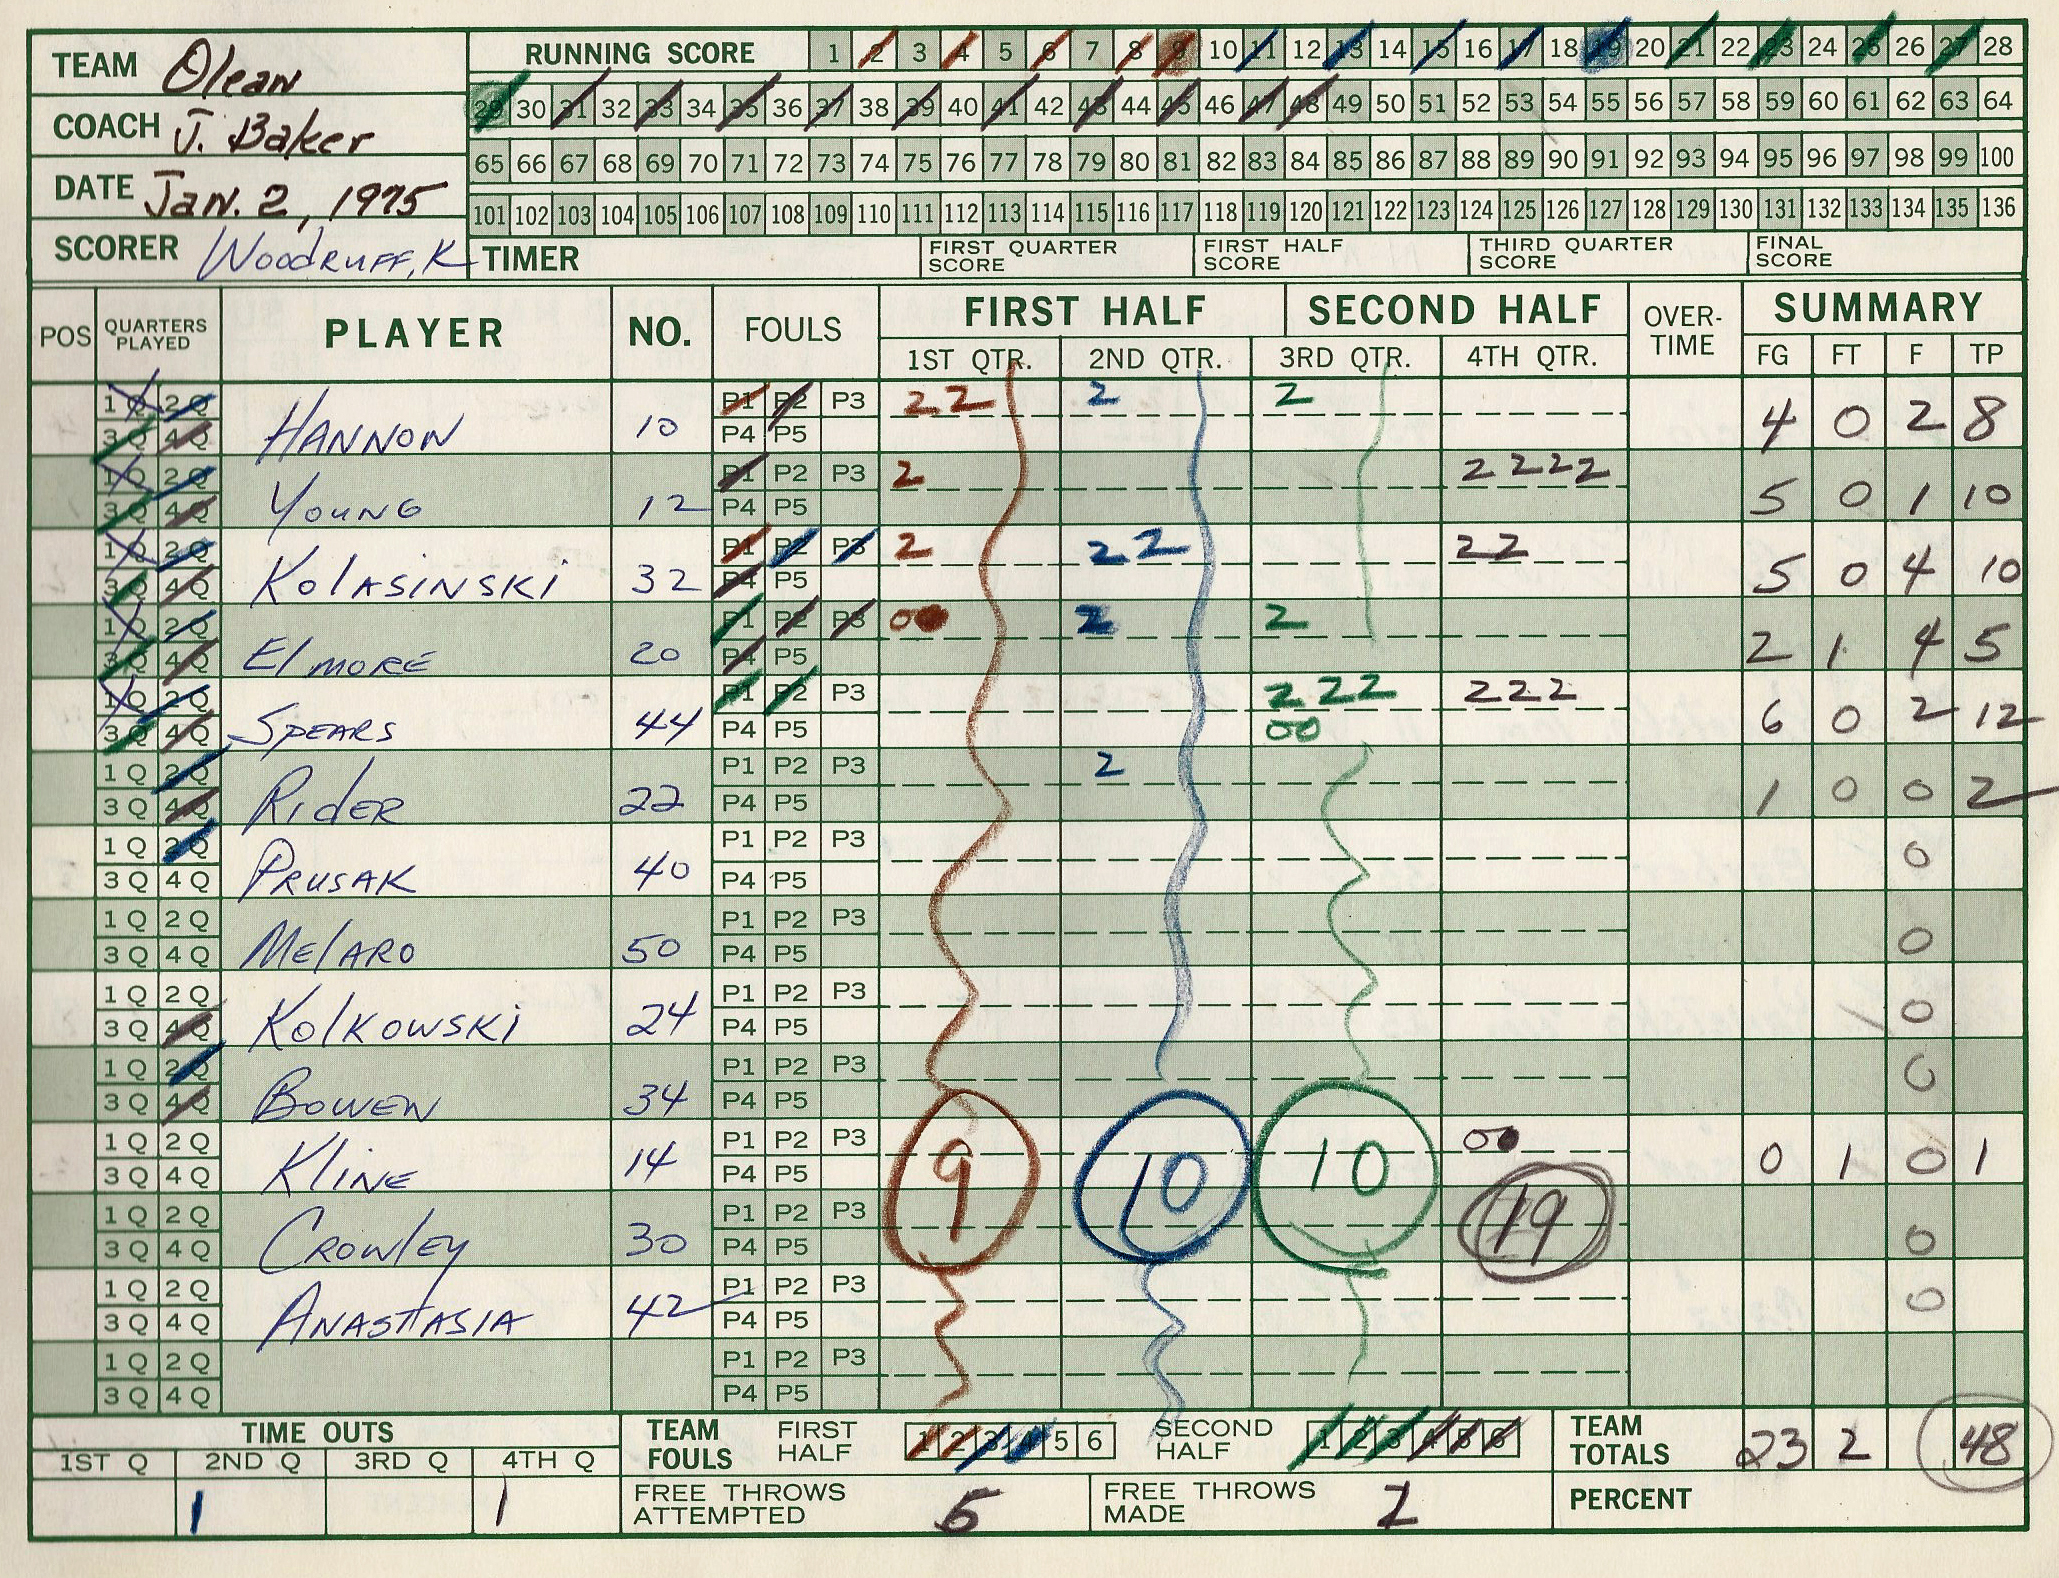 TEAM Olean
RUNNING SCORE 1 2 3 4 5 6 7 8 9 10 11 12 13 14 15 16 17 18 19 20 21 22 23 24 25 26 27 28
29 30 31 32 33 34 35 36 37 38 39 40 41 42 43 44 45 46 47 48 49 50 51 52 53 54 55 56 57 58 59 60 61 62 63 64
COACH J. Baker
65 66 67 68 69 70 71 72 73 74 75 76 77 78 79 80 81 82 83 84 85 86 87 88 89 90 91 92 93 94 95 96 97 98 99 100
DATE Jan. 2, 1975
101 102 103 104 105 106 107 108 109 110 111 112 113 114 115 116 117 118 119 120 121 122 123 124 125 126 127 128 129 130 131 132 133 134 135 136
SCORER WOODRUFF, K
TIMER
FIRST QUARTER SCORE
FIRST HALF SCORE
THIRD QUARTER SCORE
FINAL SCORE
POS QUARTERS PLAYED PLAYER NO. FOULS FIRST HALF SECOND HALF OVER-TIME SUMMARY
1ST QTR. 2ND QTR. 3RD QTR. 4TH QTR. FG FT F TP
1Q 2Q P1 P2 P3 22 2 2
3Q 4Q HANNON 10 P4 P5 4 0 2 8
1Q 2Q P1 P2 P3 2 2222
3Q 4Q YOUNG 12 P4 P5 5 0 1 10
1Q 2Q P1 P2 P3 2 22 22
3Q 4Q KOlASiNSKi 32 P4 P5 5 0 4 10
1Q 2Q P1 P2 P3 00 2 2
3Q 4Q ElMORE 20 P4 P5 2 1 4 5
1Q 2Q P1 P2 P3 222 222
3Q 4Q SPEARS 44 P4 P5 00 6 0 2 12
1Q 2Q P1 P2 P3 2
3Q 4Q RidER 22 P4 P5 1 0 0 2
1Q 2Q P1 P2 P3
3Q 4Q PRUSAK 40 P4 P5 0
1Q 2Q P1 P2 P3
3Q 4Q MElARO 50 P4 P5 0
1Q 2Q P1 P2 P3
3Q 4Q KOlKOWSKi 24 P4 P5 0
1Q 2Q P1 P2 P3
3Q 4Q BOWEN 34 P4 P5 0
1Q 2Q P1 P2 P3 00
3Q 4Q KliNE 14 P4 P5 9 10 10 0 1 0 1
1Q 2Q P1 P2 P3 19
3Q 4Q CROWlEy 30 P4 P5 0
1Q 2Q P1 P2 P3
3Q 4Q ANASTASIA 42 P4 P5 0
1Q 2Q P1 P2 P3
3Q 4Q P4 P5
TIME OUTS
1ST Q 2ND Q 3RD Q 4TH Q
1 1
TEAM FOULS FIRST HALF 1 2 3 4 5 6 SECOND HALF 1 2 3 4 5 6
TEAM TOTALS 23 2 48
FREE THROWS ATTEMPTED 5
FREE THROWS MADE 2
PERCENT